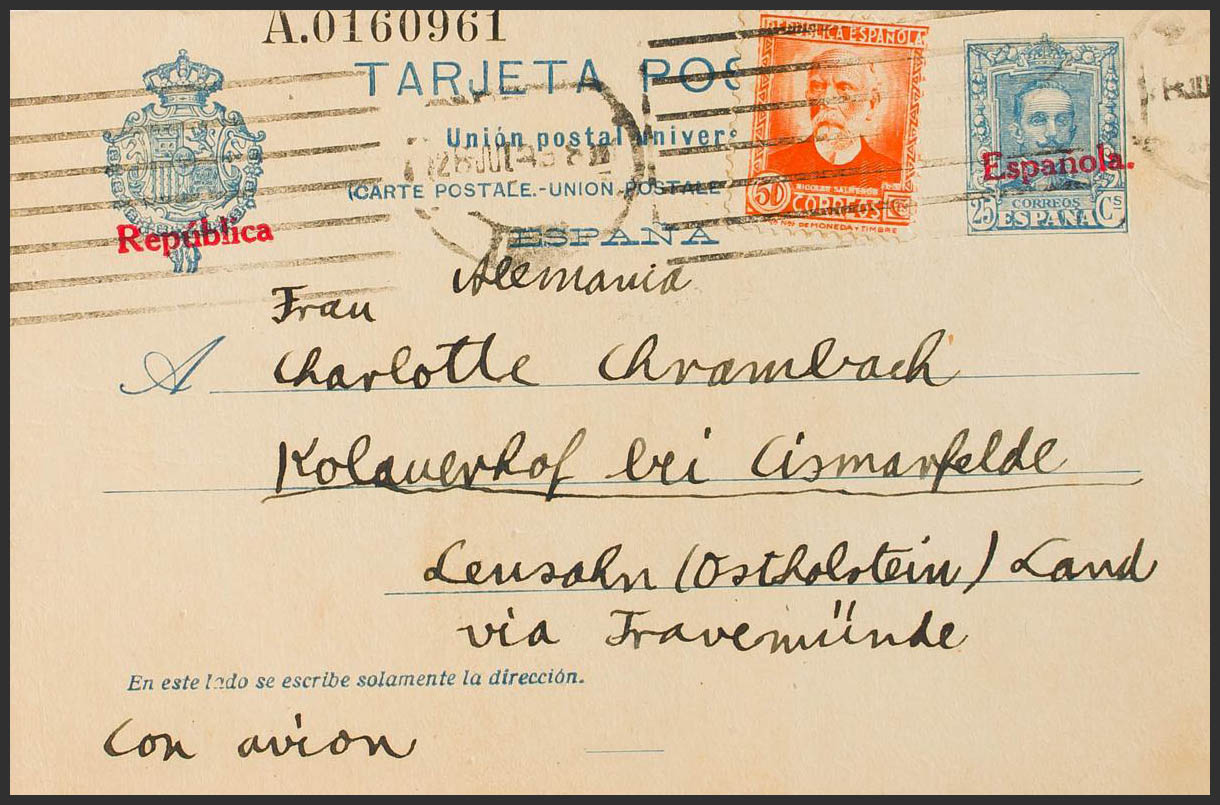 A.0160961
TARJETA POS
Unión postal univers
(CARTE POSTALE.-UNION POSTALE
ESPAÑA
REPUBLICA ESPAÑOLA
NICOLAS SALMERON
50 CORREOS
DE MONEDA Y TIMBRE
CORREOS
25 ESPAÑA Cs
República
Española.
Alemania
Frau
A Charlotte Chrambach
Kolauerhof bei Cismarfelde
Lensahn (Ostholstein) Land
via Travemünde
En este lado se escribe solamente la dirección.
Con avion